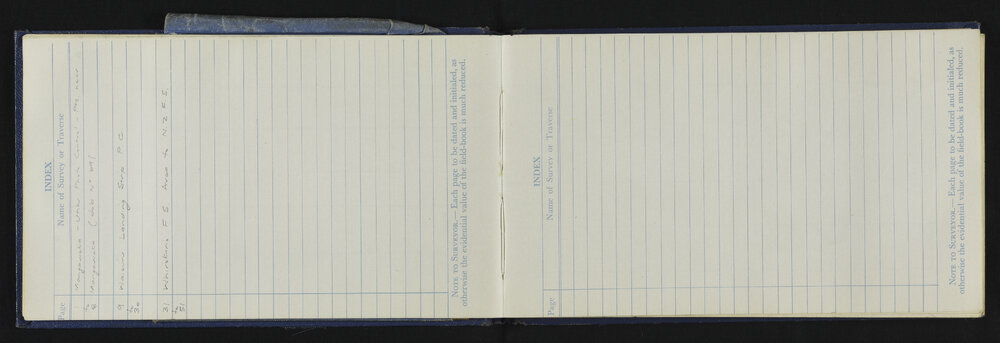 INDEX
Page Name of Survey or Traverse
1 Mangaweka -
to
8 Mangaweka
9 Landing Strip P C
to
30
31 F S Area to N Z F S
to
51
NOTE TO SURVEYOR.— Each page to be dated and initialed, as
otherwise the evidential value of the field-book is much reduced.
INDEX
Page Name of Survey or Traverse
NOTE TO SURVEYOR.— Each page to be dated and initialed, as
otherwise the evidential value of the field-book is much reduced.